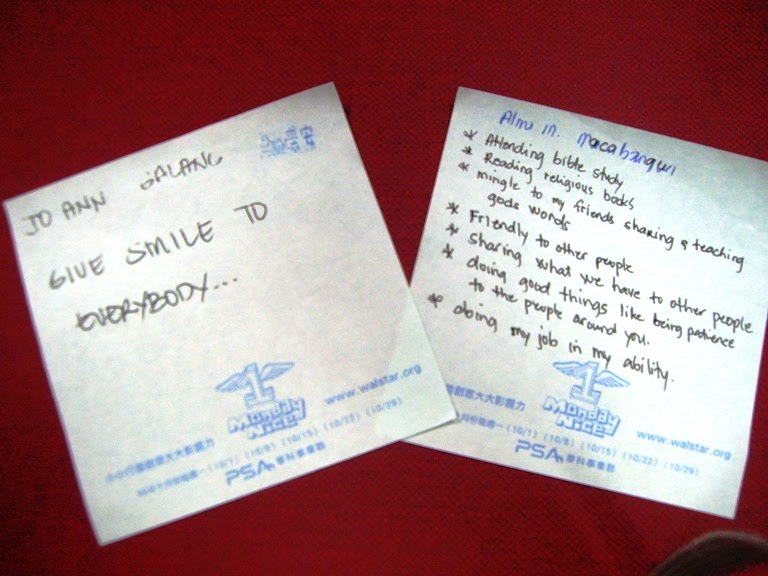 JO ANN GALANG
GIVE SMILE TO
EVERYBODY...
1
Monday
Nice!
www.walstar.org
小小行善創意大大影響力
(10/1) (10/8) (10/15) (10/22) (10/29)
PSA 華科事業群
Almi M. Macabangwi
* Attending bible study
* Reading religious books
* mingle to my friends sharing & teaching
gods words
* Friendly to other people
* sharing what we have to other people
* doing good things like being patience
to the people around you.
* doing my job in my ability.
1
Monday
Nice!
www.walstar.org
創意大大影響力
月份每週一 (10/1) (10/8) (10/15) (10/22) (10/29)
PSA 華科事業群